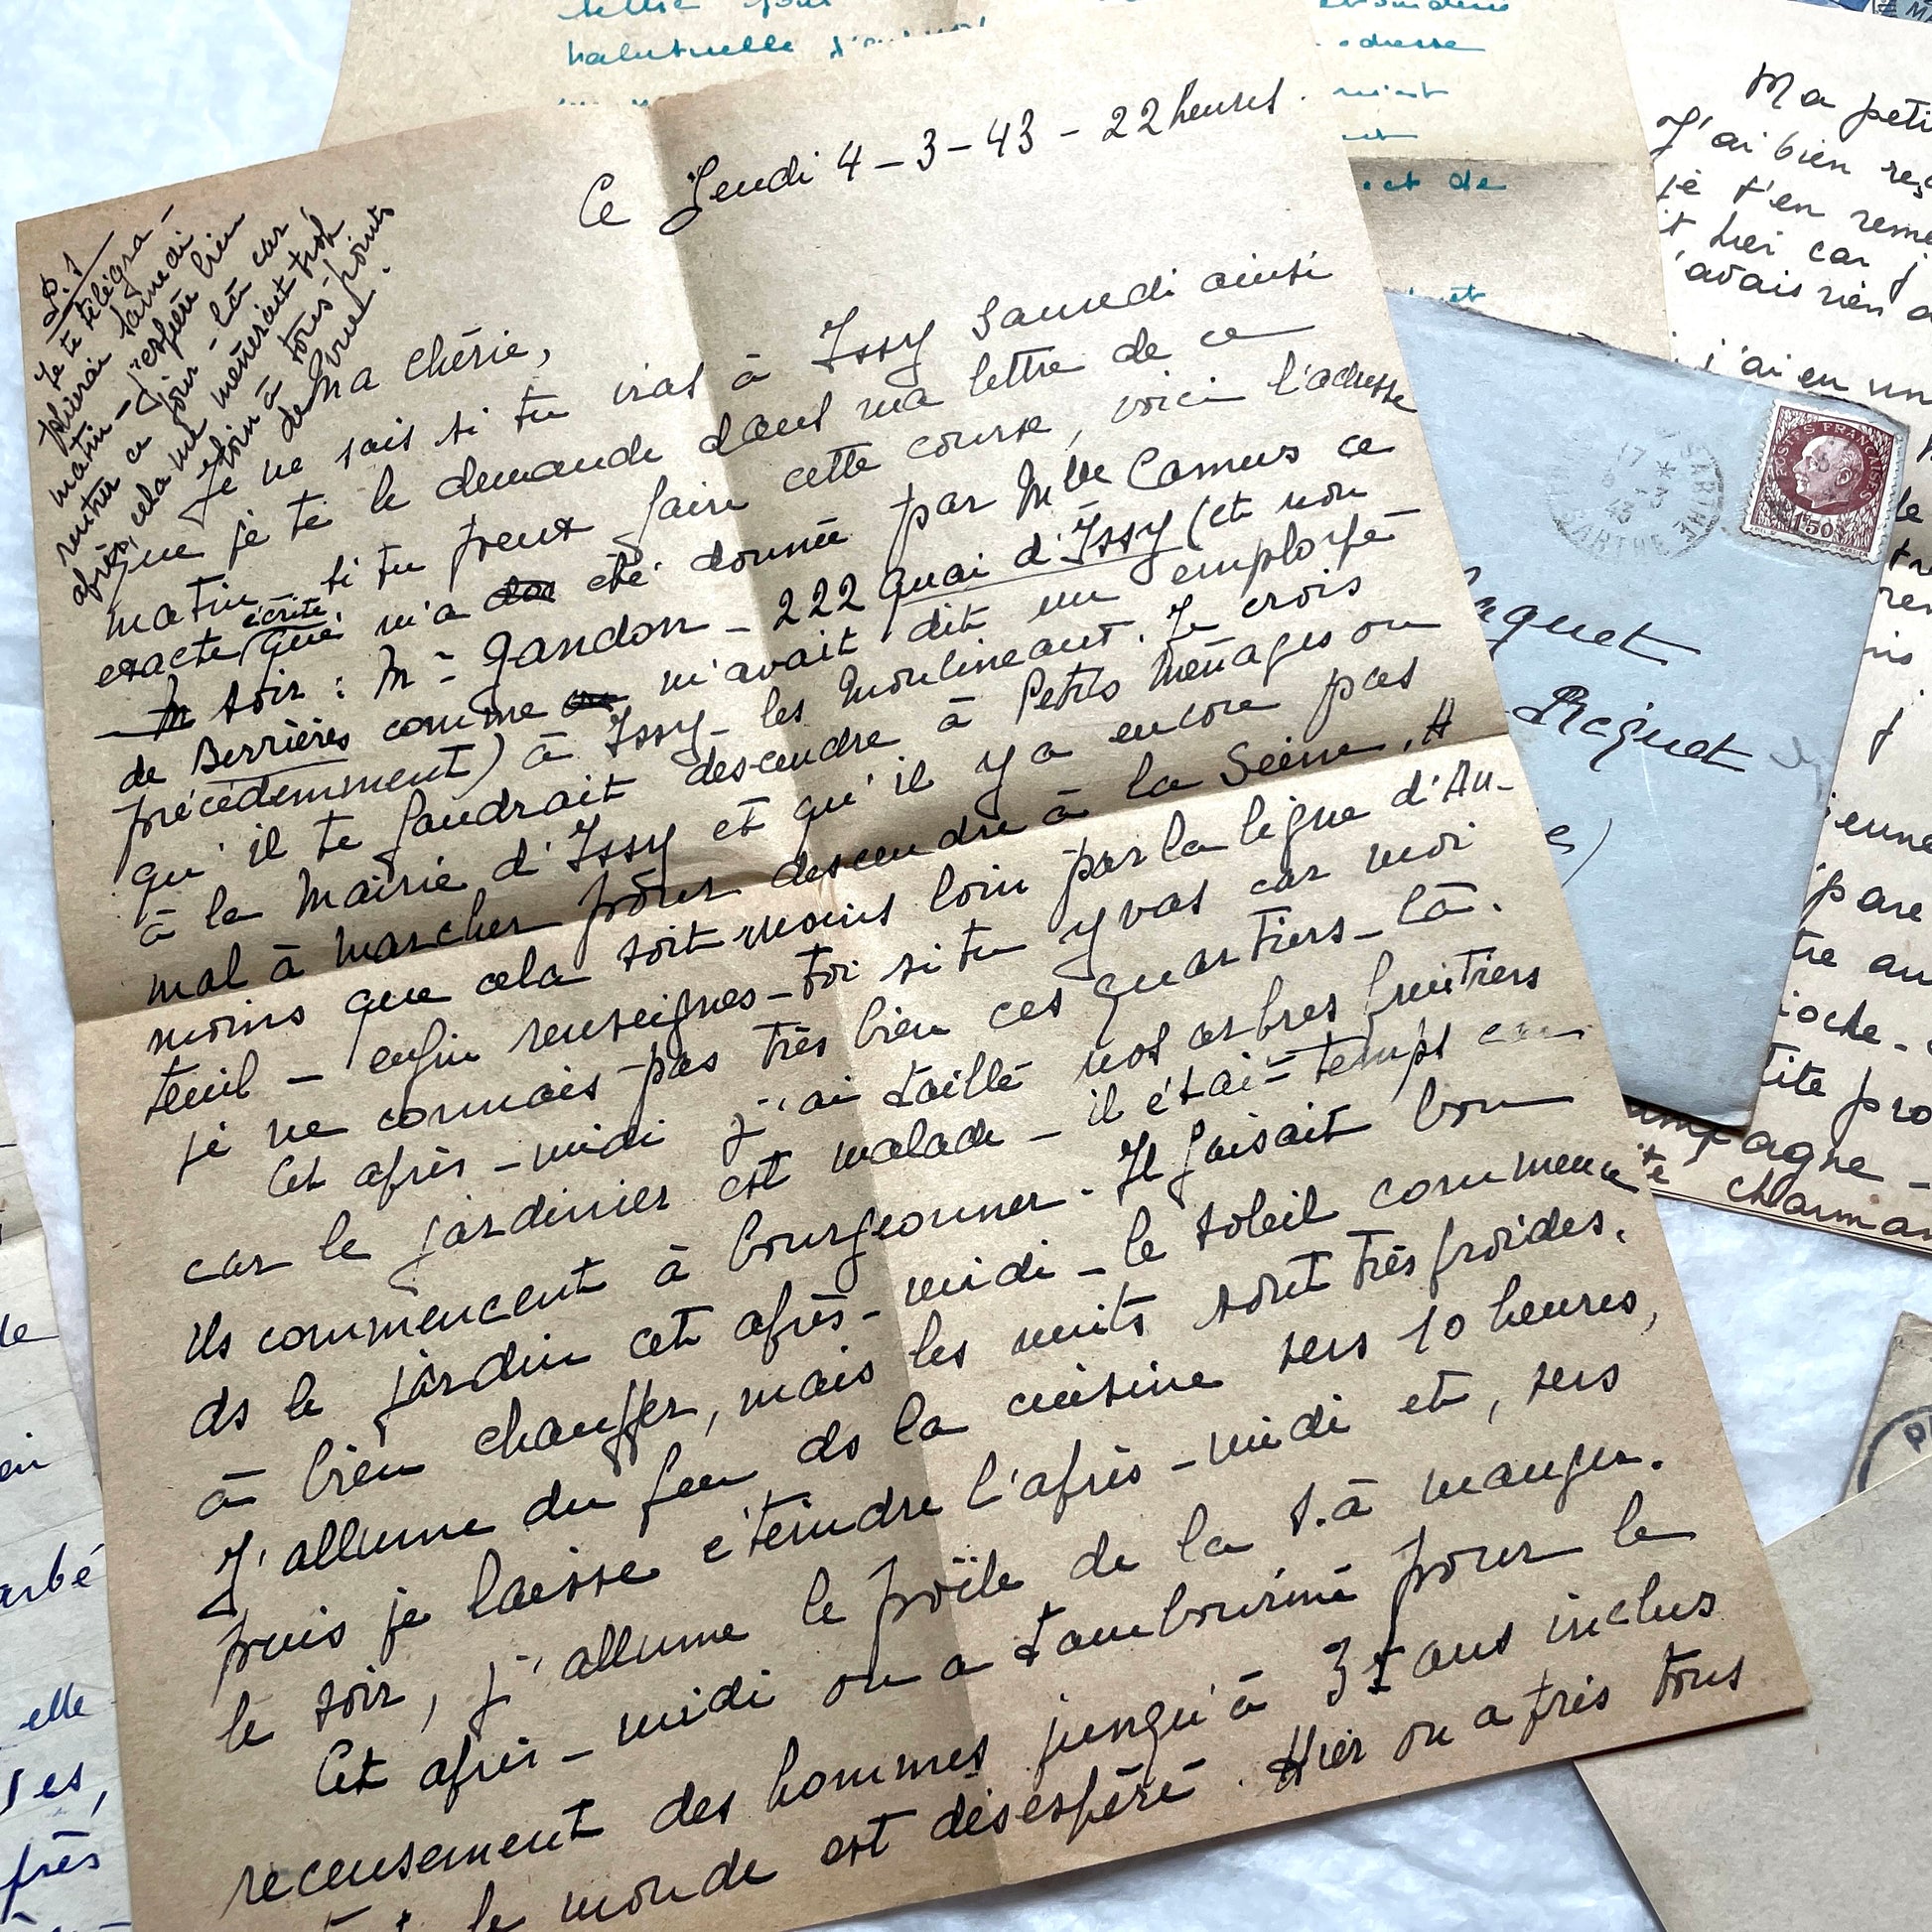 Ce Jeudi 4-3-43 - 22 heures.
P.S
Je te télégra-
phierai samedi
matin - J'espère bien
rentrer ce jour-là car
après, cela me mènerait trop
loin à tous points
de vue.
Ma Chérie,
Je ne sais si tu iras à Issy Samedi ainsi
que je te le demande dans ma lettre de ce
matin. si tu peux faire cette course, voici l'adresse
exacte que m'a été donnée par Mlle Camus ce
écrite
soir : Mr Gandon - 222 quai d'Issy (et non
de Berrières comme m'avait dit un employé
précédemment) à Issy-les Moulineaux. Je crois
qu'il te faudrait descendre à Petits Ménages ou
à la Mairie d'Issy et qu'il y a encore pas
mal à marcher pour descendre à la Seine. A
moins que cela soit moins loin par la ligne d'Au-
teuil - enfin renseignes-toi si tu y vas car moi
je ne connais pas très bien ces quartiers-là.
Cet après-midi j'ai taillé nos arbres fruitiers
car le jardinier est malade - il était temps car
ils commencent à bourgeonner. Il faisait bon
ds le jardin cet après-midi - le soleil commence
à bien chauffer, mais les nuits sont très froides.
J'allume du feu ds la cuisine vers 10 heures,
puis je laisse éteindre l'après-midi et, vers
le soir, j'allume le poële de la S. à manger.
Cet après-midi on a tambouriné pour le
recensement des hommes jusqu'à 31 ans inclus
le monde est désespéré. Hier on a pris tous
habituelle
adresse
et de
Ma peti
J'ai bien reç
je t'en reme
it hier car j
'avais rien
j'ai eu un
POSTES FRANÇAISES
1F50
SARTHE
17
43
aquet
Riquet
s)
ienne
pare
tre au
ioche -
tite pro
ampagne -
charman
de
arbé
elle
ses,
près